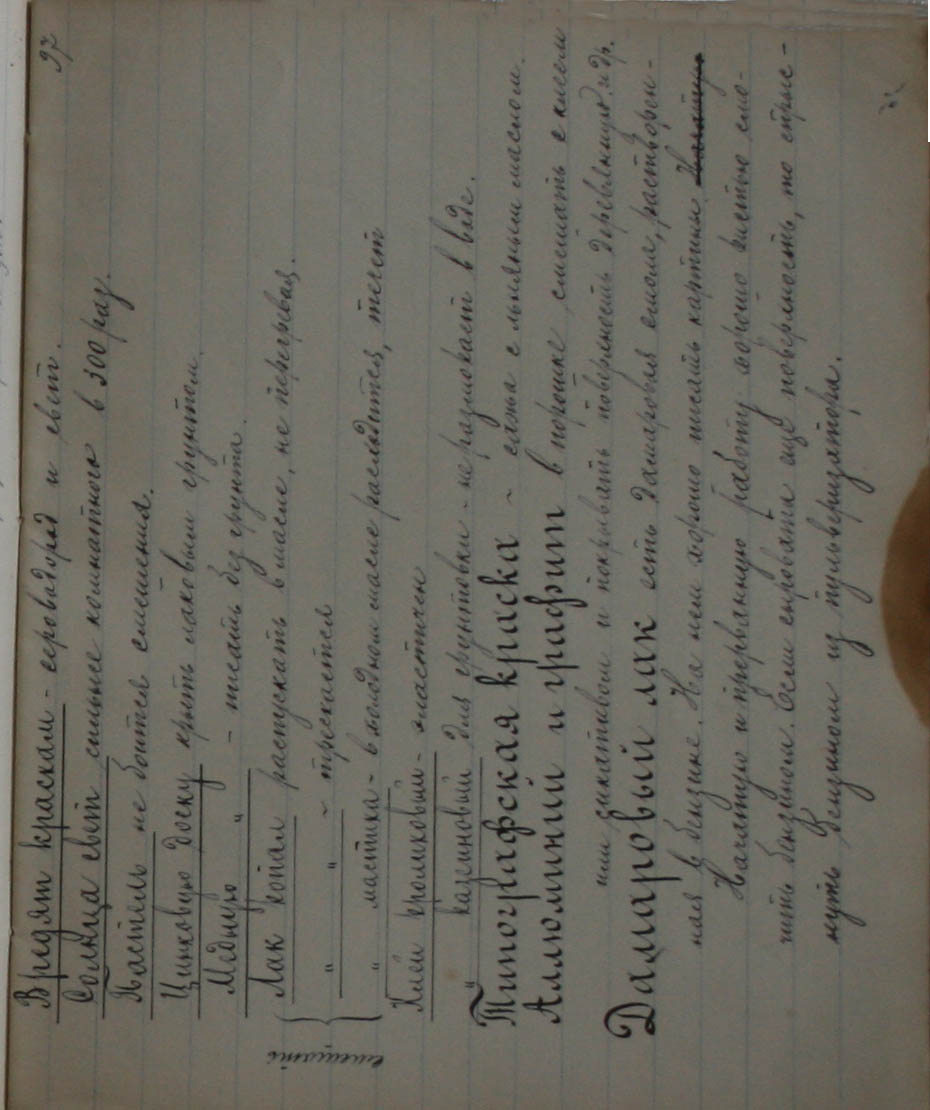 97
Вредят краскам - сероводород и свет.
Солнца свет сильнее комнатного в 300 раз.
Пастель не боится смешения.
Цинковую доску крыть лаковым грунтом.
Медную " - писать без грунта.
Лак копал распускать в масле, не перегревая.
" " - трескается
" мастика - в холодном масле расходится, течет
смешать
Клей кроликовый - эластичен
" казеиновый для грунтовки - не размокает в воде.
Типографская краска ~ сажа с льняным маслом.
Аллюминий и графит в порошке смешать с клеем
или сикативом и покрывать поверхность деревянную и др.
Дамаровый лак есть дамаровая смола, растворен-
ная в бензине. На нем хорошо писать картины.
Начатую и прерванную работу хорошо чисто смо-
чить бензином. Если сыроватая ещё поверхность, то спрыс-
нуть бензином из пульверизатора.